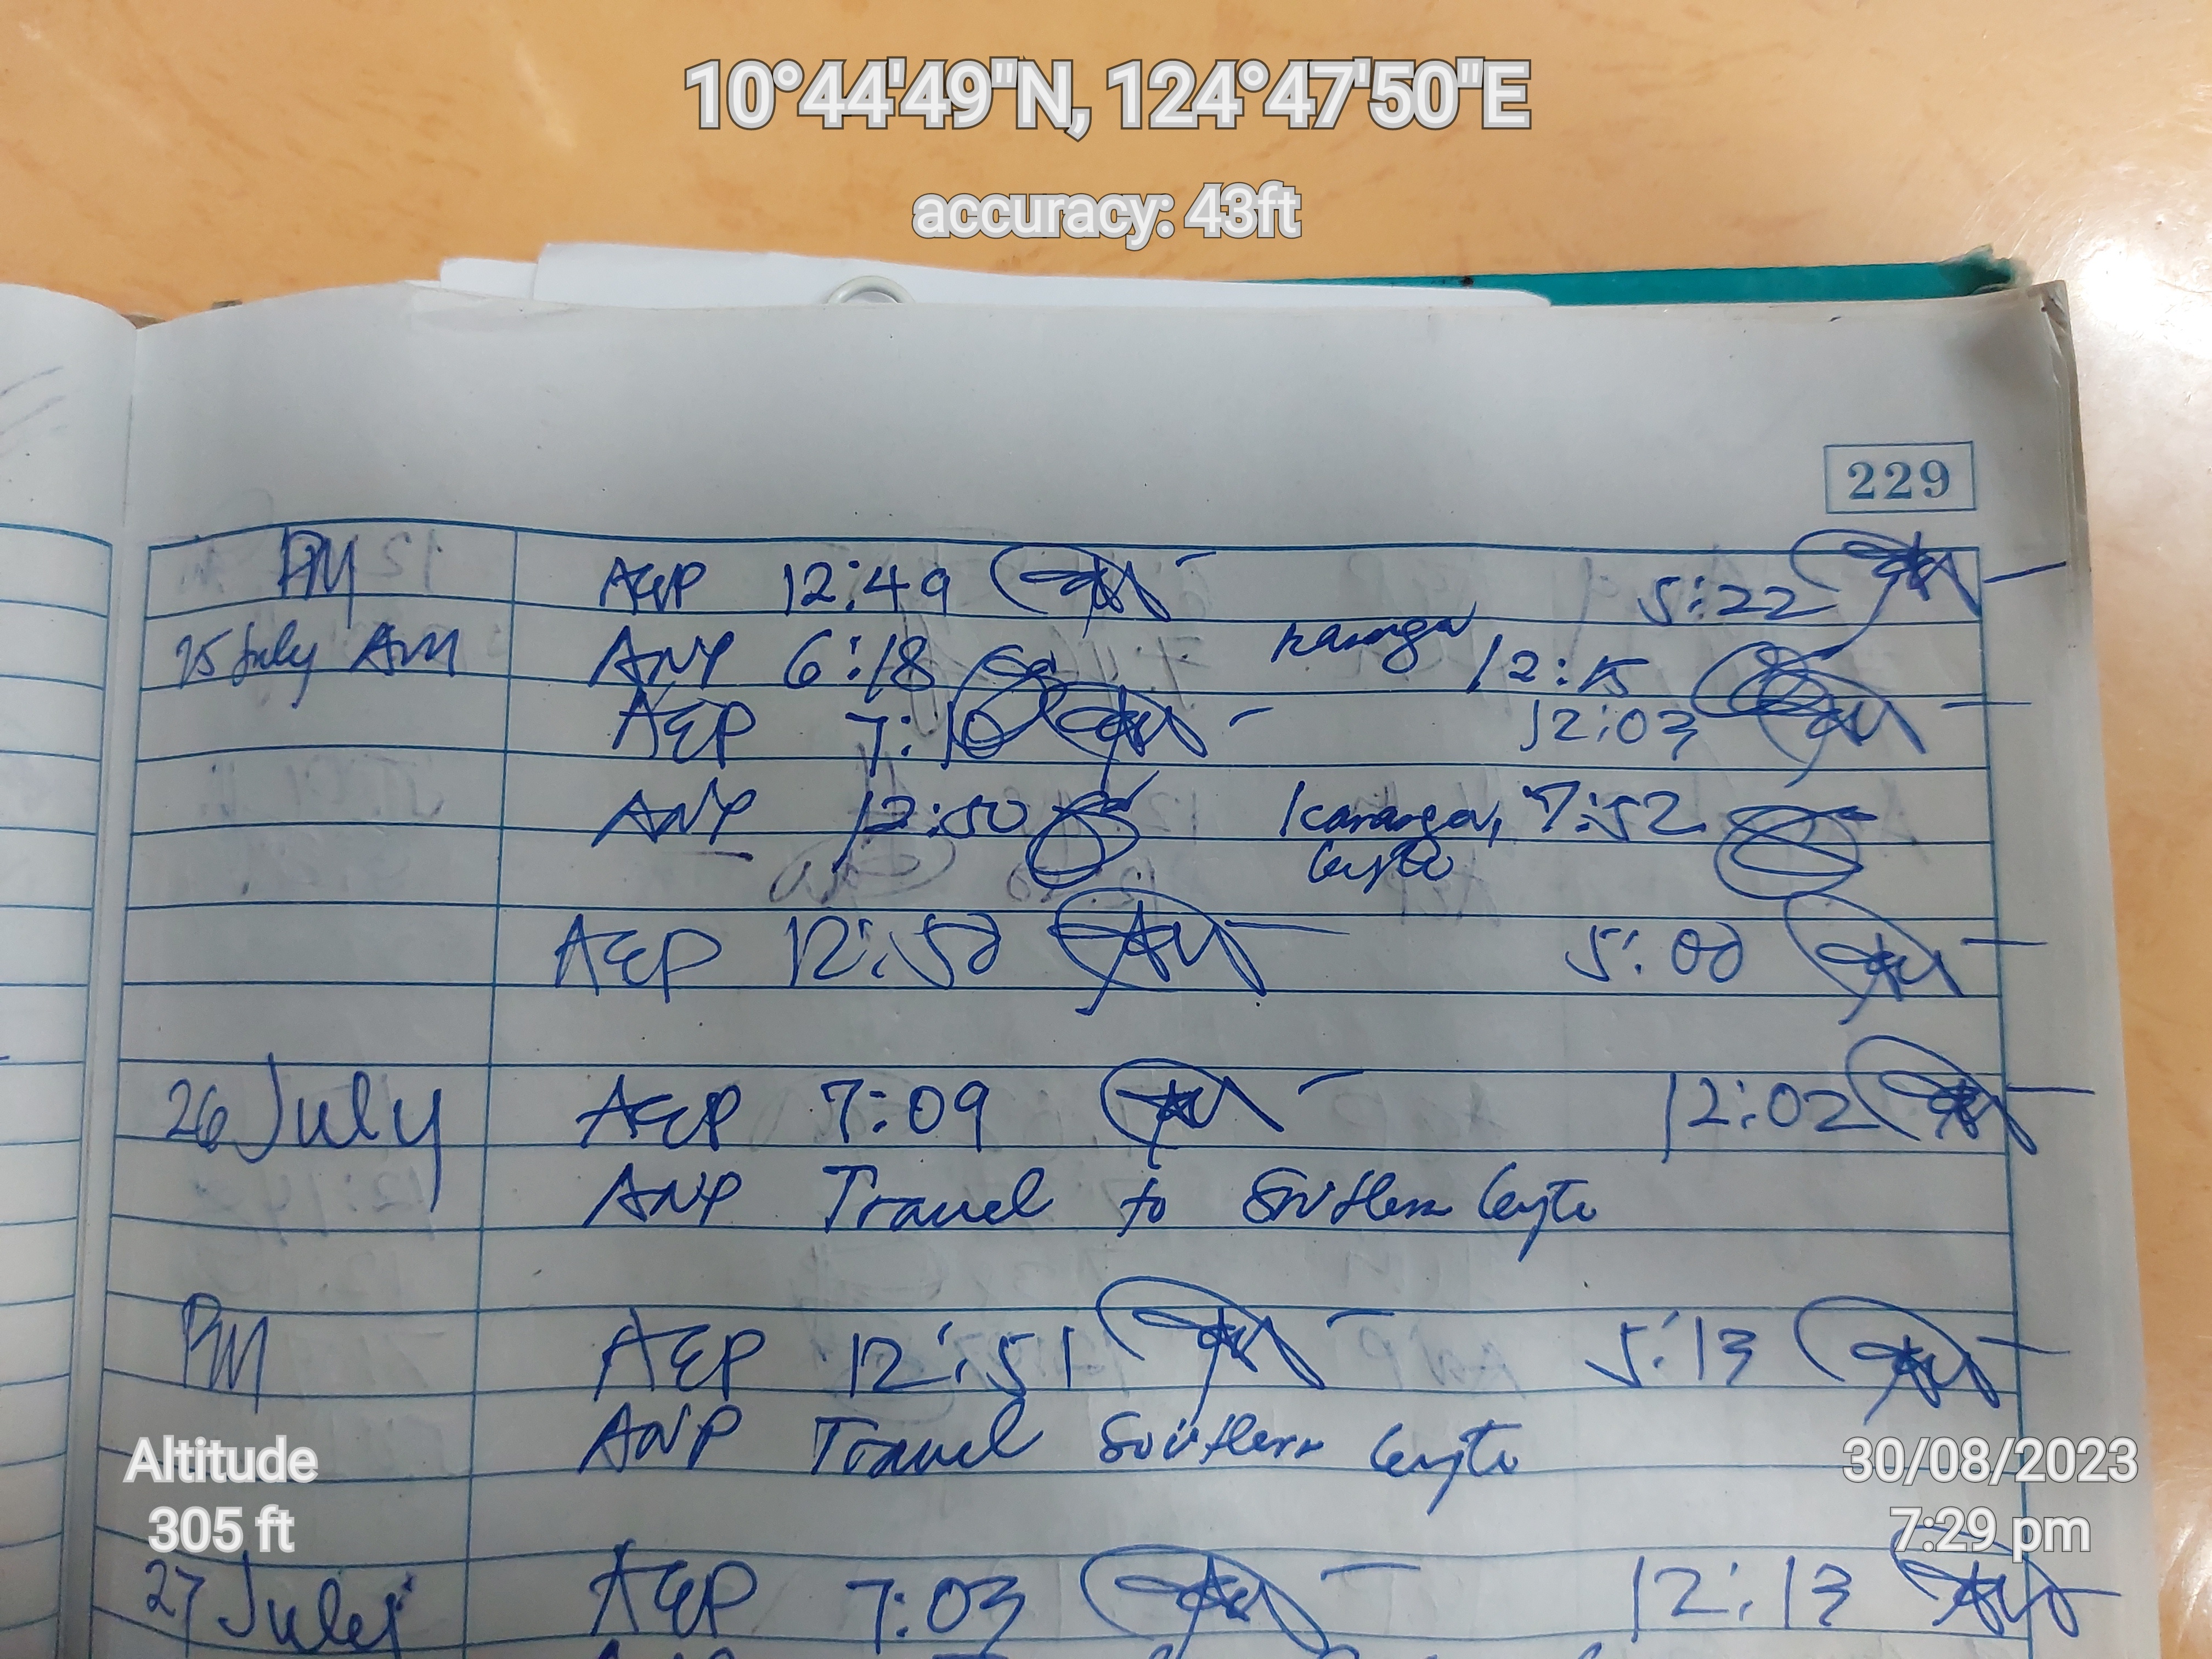 10°44'49"N, 124°47'50"E
accuracy: 43ft
229
PM AEP 12:49 5:22
25 July AM ANP 6:18 12:15
AEP 7:10 12:03
ANP 12:50 7:52
Leyte
AEP 12:50 5:00
26 July AEP 7:09 12:02
ANP Travel to Southern Leyte
PM AEP 12:51 5:13
ANP Travel Southern Leyte
Altitude
305 ft
30/08/2023
7:29 pm
27 July AEP 7:03 12:13